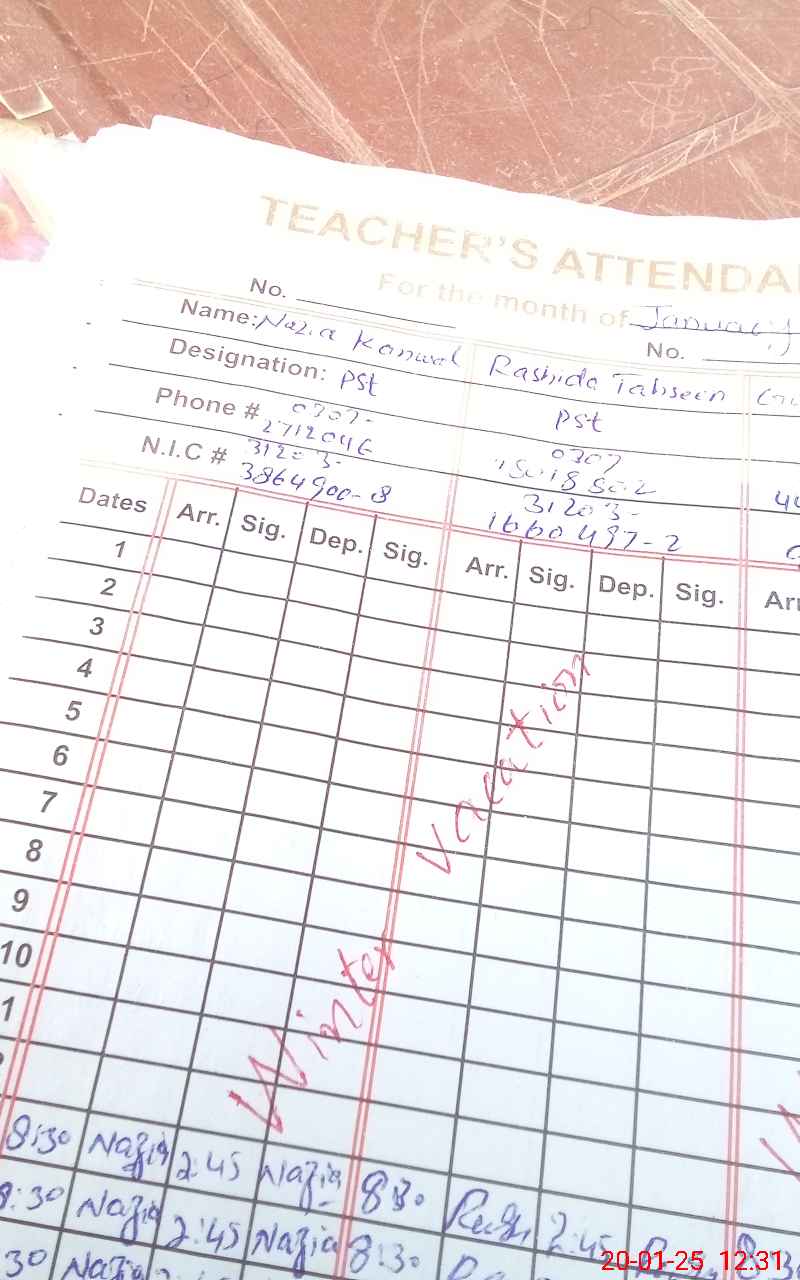 TEACHER'S ATTENDA
For the month of January
No. No.
Name: Nazia Kanwal Rashida Tahseen
Designation: PSt PSt
Phone # 0307- 0307
2712046
N.I.C # 31203- 31203-
3864900-8 1660437-2
Dates Arr. Sig. Dep. Sig. Arr. Sig. Dep. Sig. Arr
1
2
3
4
5
6
7
8
9
10
1
Winter Vacation
8:30 Nazia 2:45 Nazia 8:30 2:45
8:30 Nazia 2:45 Nazia 8:30 2:45
30 Nazia
20-01-25 12:31